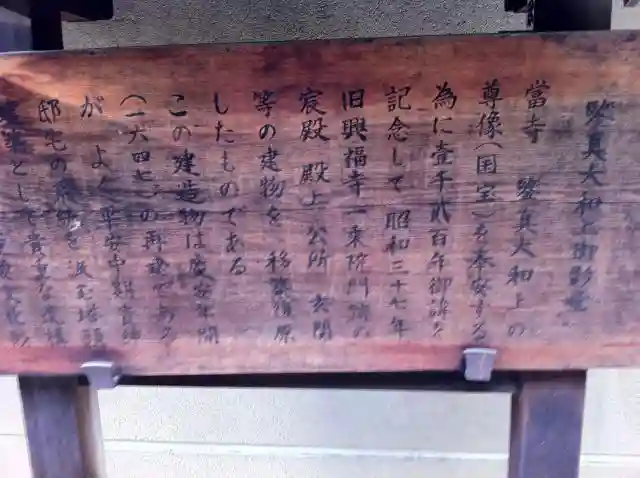 鑒真大和上御影堂
當寺 鑒真大和上の
尊像(国宝)を奉安する
為に壹千貳百年御諱を
記念して 昭和三十七年
旧興福寺一乗院門跡の
宸殿 殿上 公所 玄関
等の建物を 移築復原
したものである
この建造物は慶安年間
(一六四七)の再建である
が よく平安中期貴紳
邸宅の
として貴重な